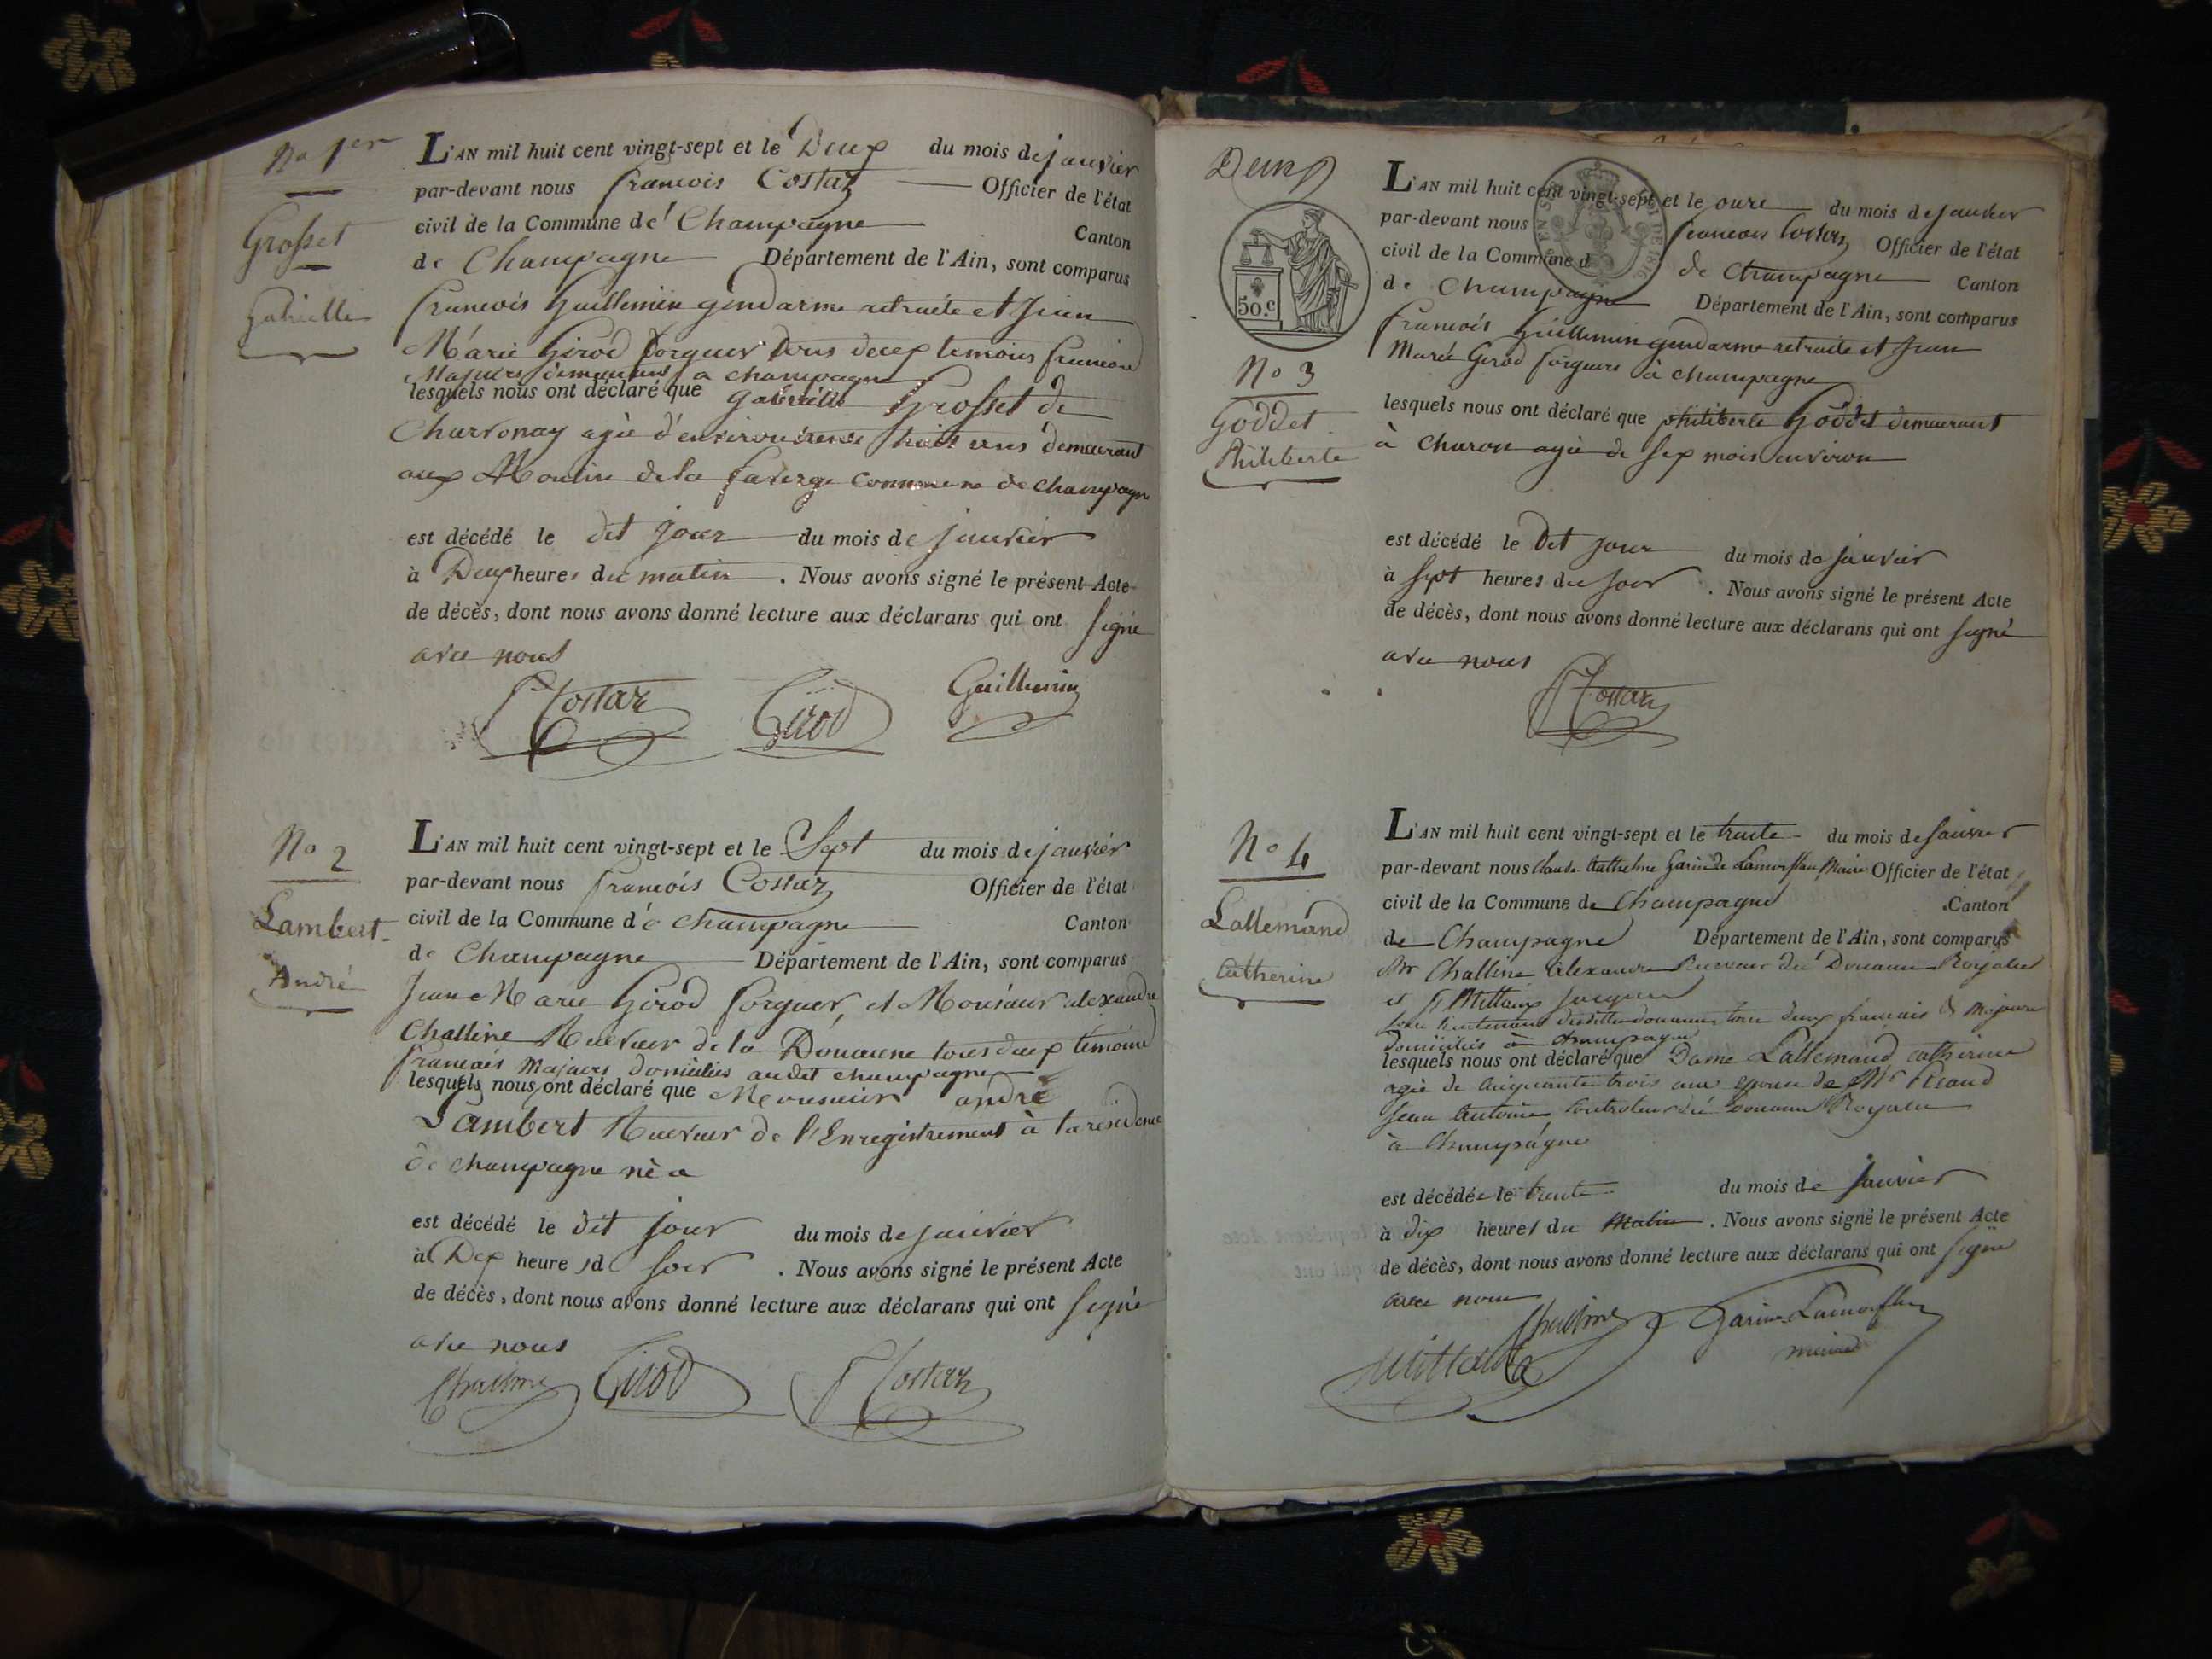 No 1er
Grosset
Gabrielle
L'AN mil huit cent vingt-sept et le Deux du mois de janvier
par-devant nous francois Costaz Officier de l'état
civil de la Commune de Champagne Canton
de Champagne Département de l'Ain, sont comparus
francois Guillemin gendarme retraite et jean
Marie Girod forgeur tous deux temoins francois
Majeurs demeurant a champagne
lesquels nous ont déclaré que gabrielle Grosset de
Charvonay agie d'environ huit ans demeurant
aux Moulin de la faverge commune de champagne
est décédé le dit jour du mois de janvier
à Deux heures du matin . Nous avons signé le présent Acte
de décès, dont nous avons donné lecture aux déclarans qui ont signé
avec nous
Costaz Girod Guillemin
No 2
Lambert
André
L'AN mil huit cent vingt-sept et le Sept du mois de janvier
par-devant nous francois Costaz Officier de l'état
civil de la Commune de champagne Canton
de Champagne Département de l'Ain, sont comparus
Jean Marie Girod forgeur, et Monsieur alexandre
Challine Receveur de la Douanne tous deux temoins
francais Majeurs domiciliés audit champagne
lesquels nous ont déclaré que Monsieur andré
Lambert Receveur de l'Enregistrement à la residence
de champagne né a
est décédé le dit jour du mois de janvier
à Dix heures d soir . Nous avons signé le présent Acte
de décès, dont nous avons donné lecture aux déclarans qui ont signé
avec nous
Challine Girod Costaz
Deux
50.c
No 3
Goddet
Philiberte
L'AN mil huit cent vingt-sept et le onze du mois de janvier
par-devant nous francois Costaz Officier de l'état
civil de la Commune d de Champagne Canton
de Champagne Département de l'Ain, sont comparus
francois Guillemin gendarme retraite et jean
Marie Girod forgeurs à champagne
lesquels nous ont déclaré que philiberte Goddet demeurant
à Charon agié de six mois environ
est décédé le Dit jour du mois de janvier
à sept heures du soir . Nous avons signé le présent Acte
de décès, dont nous avons donné lecture aux déclarans qui ont signé
avec nous
Costaz
No 4
Lallemand
Catherine
L'AN mil huit cent vingt-sept et le trente du mois de Janvier
par-devant nous Claude Anthelme Garin de Lamorflan Maire Officier de l'état
civil de la Commune de Champagne Canton
de Champagne Département de l'Ain, sont comparus
Mr Challine Alexandre Receveur des Douanes Royales
et Mittaux Jacques
tous deux francais & Majeurs
Domiciliés à champagne
lesquels nous ont déclaré que Dame Lallemand catherine
agée de cinquante trois ans epouse de Mr
Jean Antoine Controleur des Douanes Royales
à Champagne
est décédée le trente du mois de Janvier
à dix heures du Matin . Nous avons signé le présent Acte
de décès, dont nous avons donné lecture aux déclarans qui ont signé
avec nous
Challine Garin Lamorflan
maire